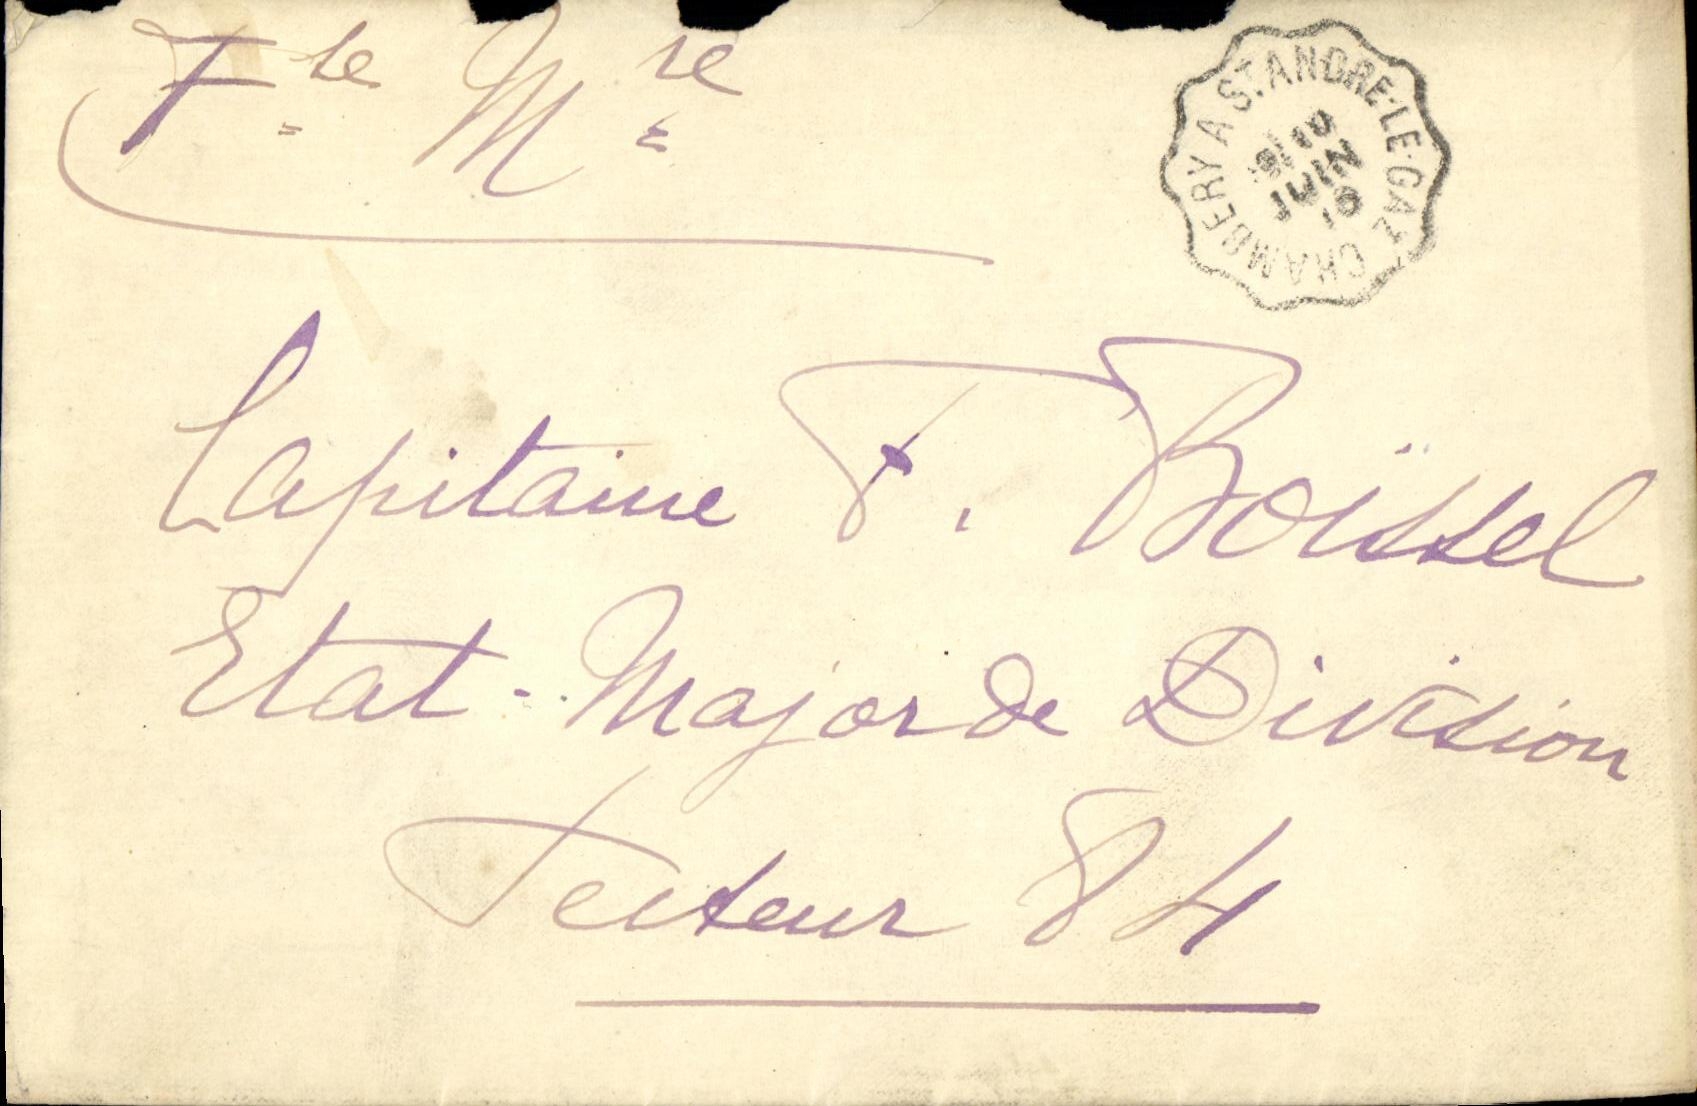 F se M re
CHAMBERY A ST. ANDRE-LE-GAZ
JUIN
Capitaine F. Boissel
Etat-Major de Division
Secteur 84